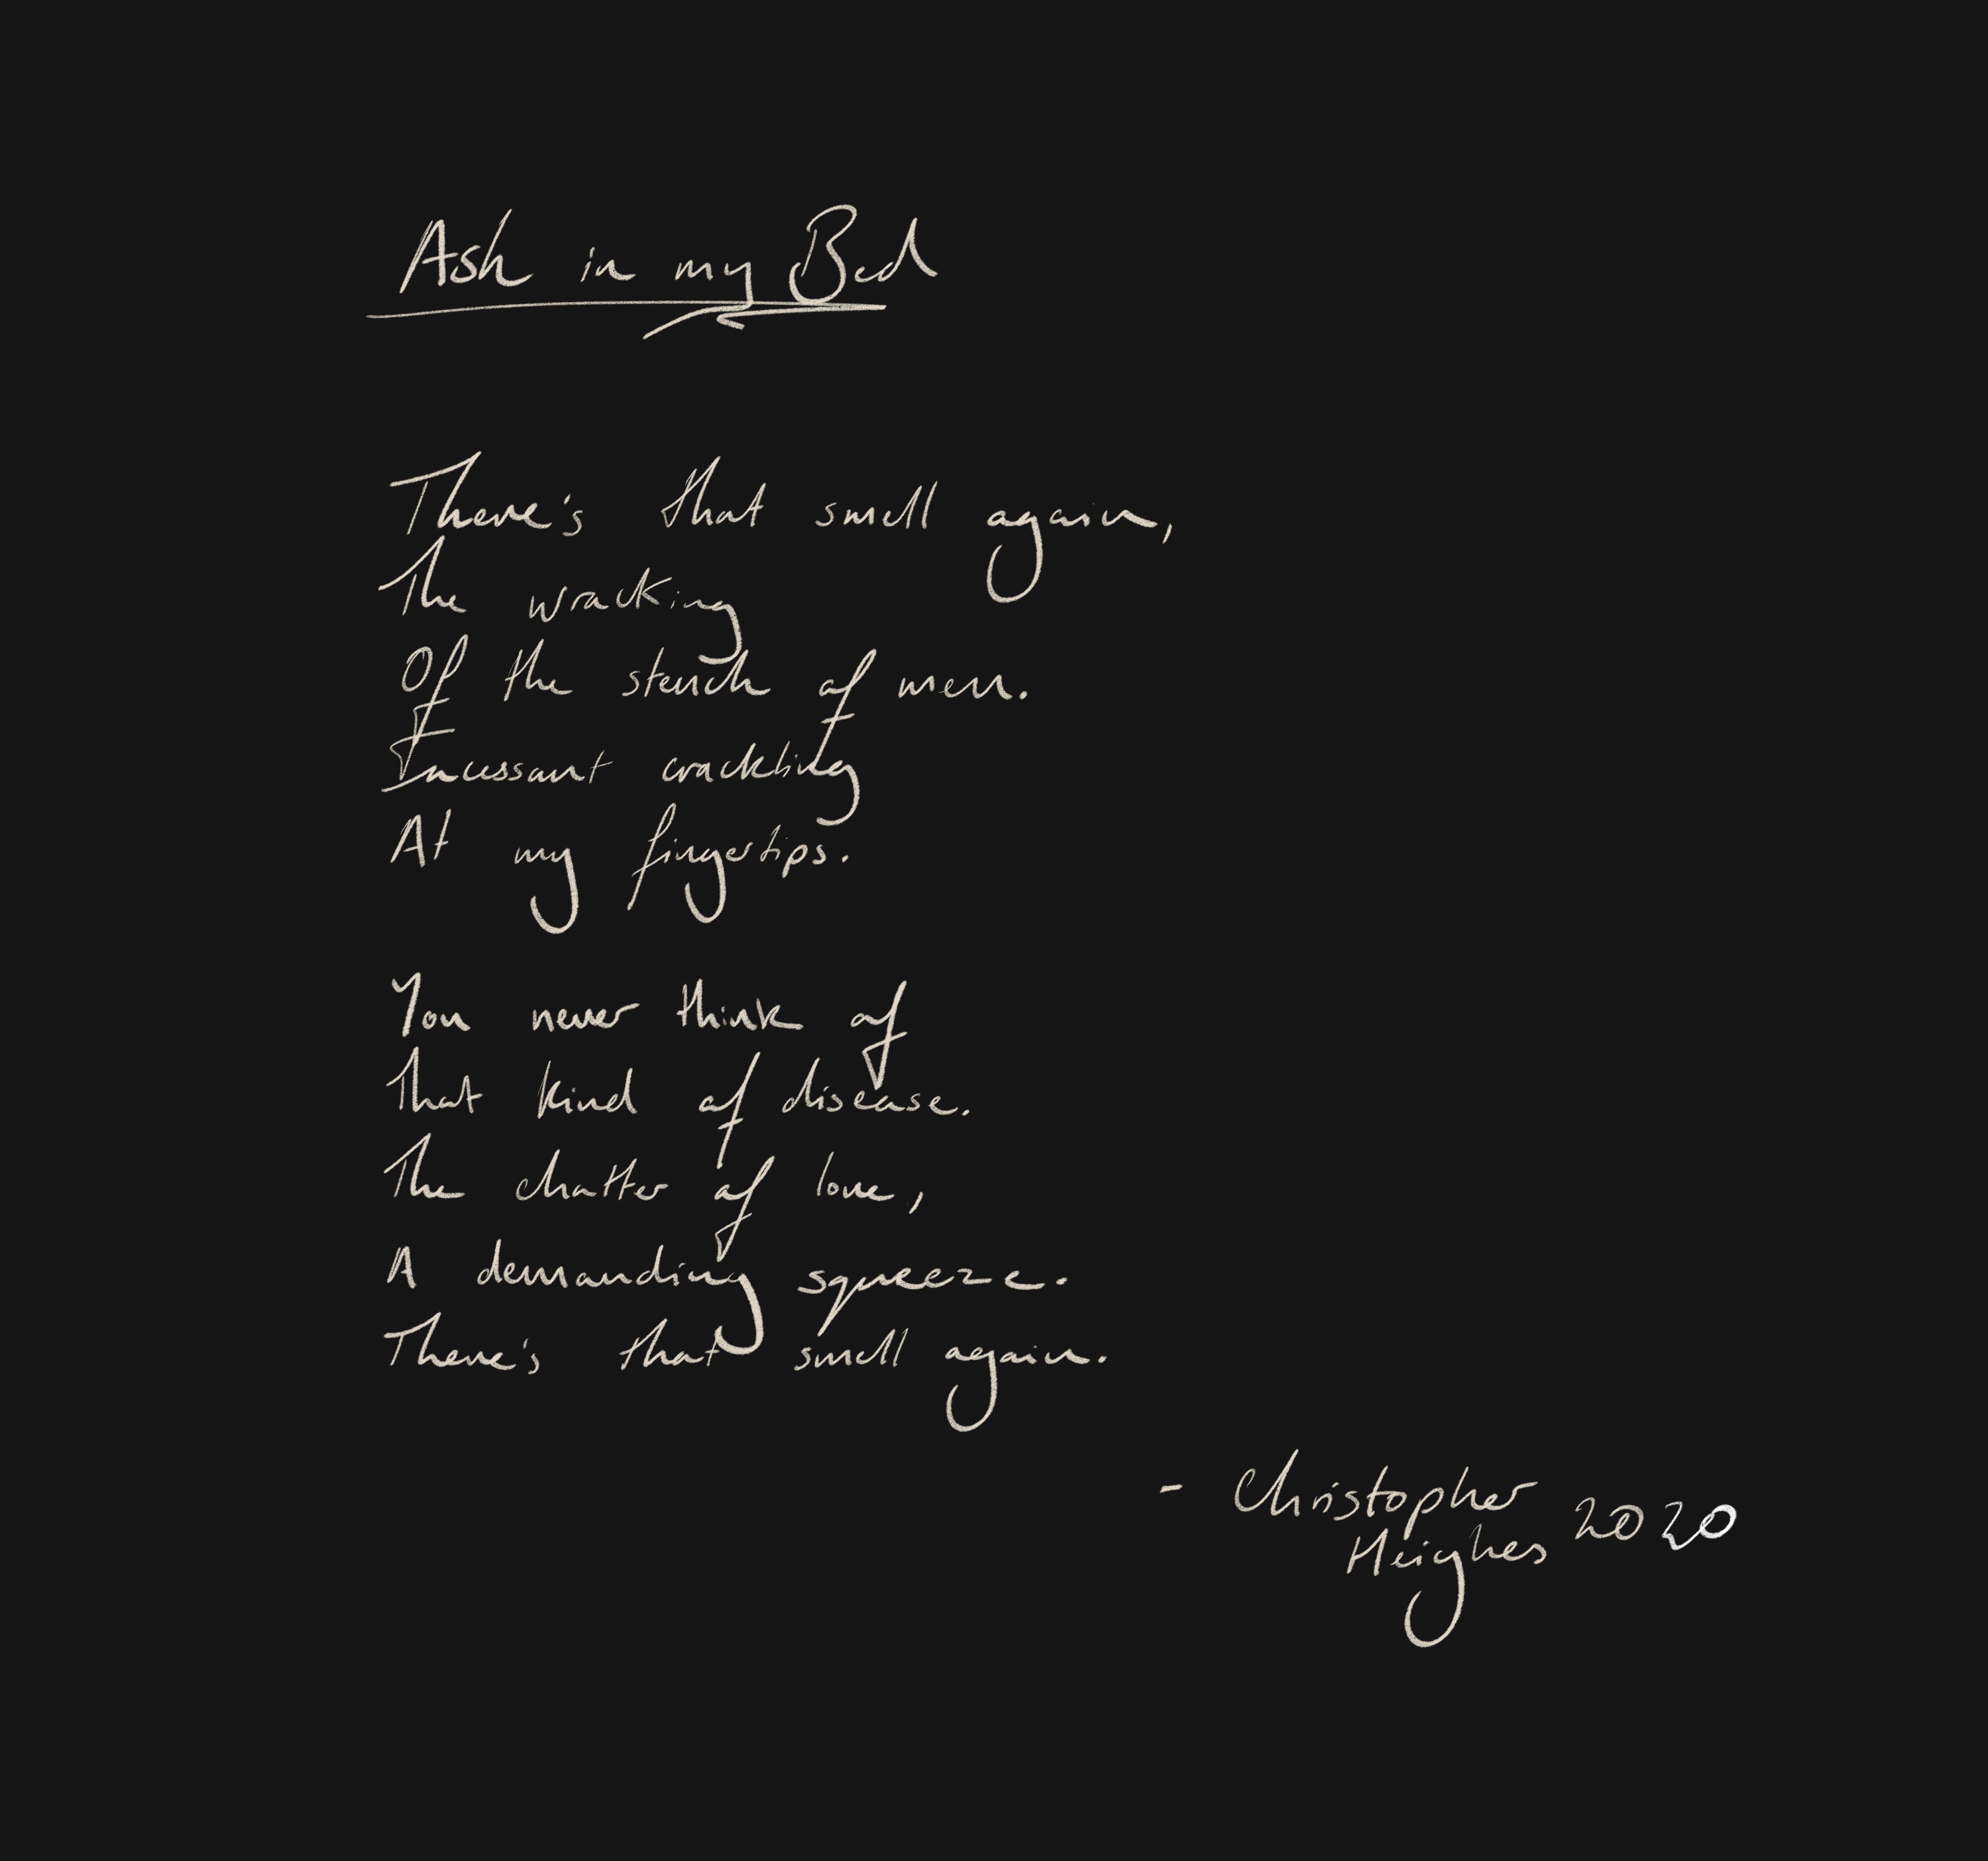 Ash in my Bed
There's that smell again,
The wracking
Of the stench of men.
Incessant crackling
At my fingertips.
You never think of
That kind of disease.
The chatter of love,
A demanding squeeze.
There's that smell again.
- Christopher
Heighes 2020